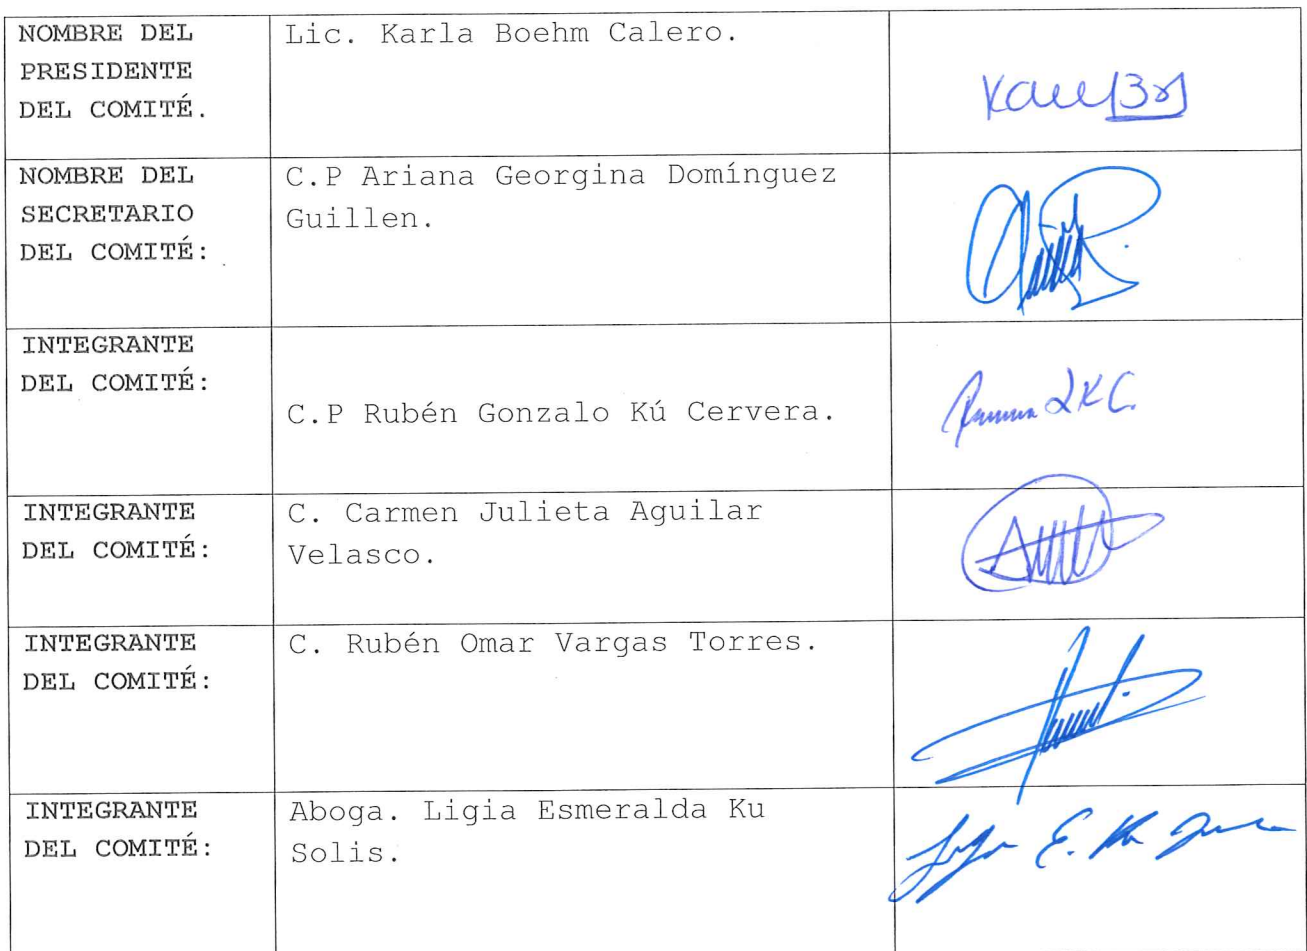 NOMBRE DEL
PRESIDENTE
DEL COMITÉ.
Lic. Karla Boehm Calero.
NOMBRE DEL
SECRETARIO
DEL COMITÉ:
C.P Ariana Georgina Domínguez
Guillen.
INTEGRANTE
DEL COMITÉ:
C.P Rubén Gonzalo Kú Cervera.
INTEGRANTE
DEL COMITÉ:
C. Carmen Julieta Aguilar
Velasco.
INTEGRANTE
DEL COMITÉ:
C. Rubén Omar Vargas Torres.
INTEGRANTE
DEL COMITÉ:
Aboga. Ligia Esmeralda Ku
Solis.